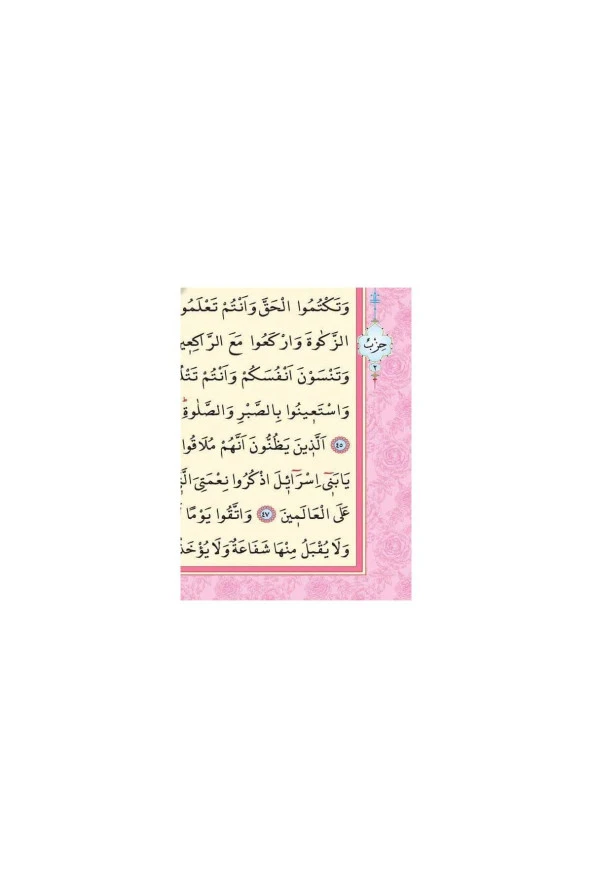 وَتَكْتُمُوا الْحَقَّ وَاَنْتُمْ تَعْلَمُو
الزَّكٰوةَ وَارْكَعُوا مَعَ الرَّاكِعٖي
وَتَنْسَوْنَ اَنْفُسَكُمْ وَاَنْتُمْ تَتْلُ
وَاسْتَعٖينُوا بِالصَّبْرِ وَالصَّلٰوةِ
٤٥ اَلَّذٖينَ يَظُنُّونَ اَنَّهُمْ مُلَاقُوا
يَا بَنٖٓى اِسْرَٓائٖلَ اذْكُرُوا نِعْمَتِىَ الَّ
عَلَى الْعَالَمٖينَ ٤٧ وَاتَّقُوا يَوْمًا
وَلَا يُقْبَلُ مِنْهَا شَفَاعَةٌ وَلَا يُؤْخَذُ
حِزْبْ
٢